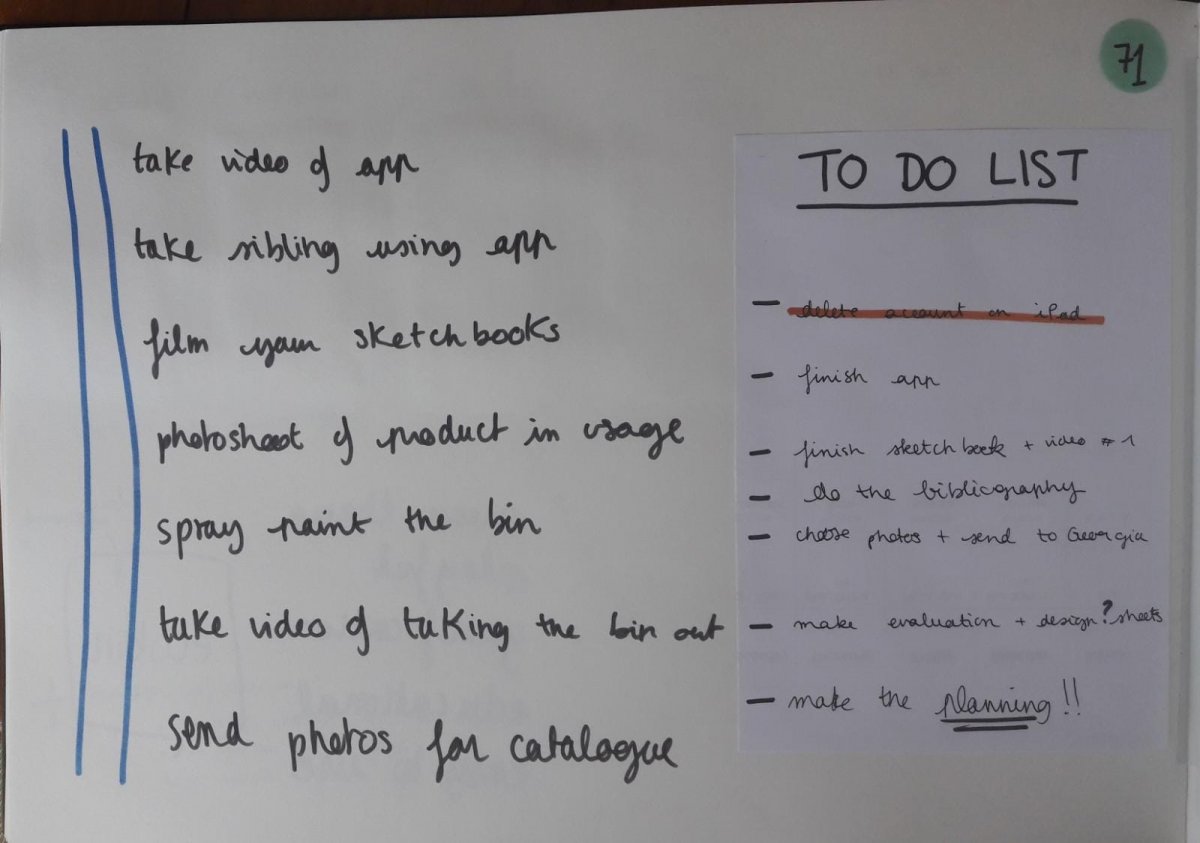 71
take video of app
take sibling using app
film your sketchbooks
photoshoot of product in usage
spray paint the bin
take video of taking the bin out
send photos for catalogue
TO DO LIST
- delete account on iPad
- finish app
- finish sketchbook + video #1
- do the bibliography
- choose photos + send to Georgia
- make evaluation + design? sheets
- make the planning!!